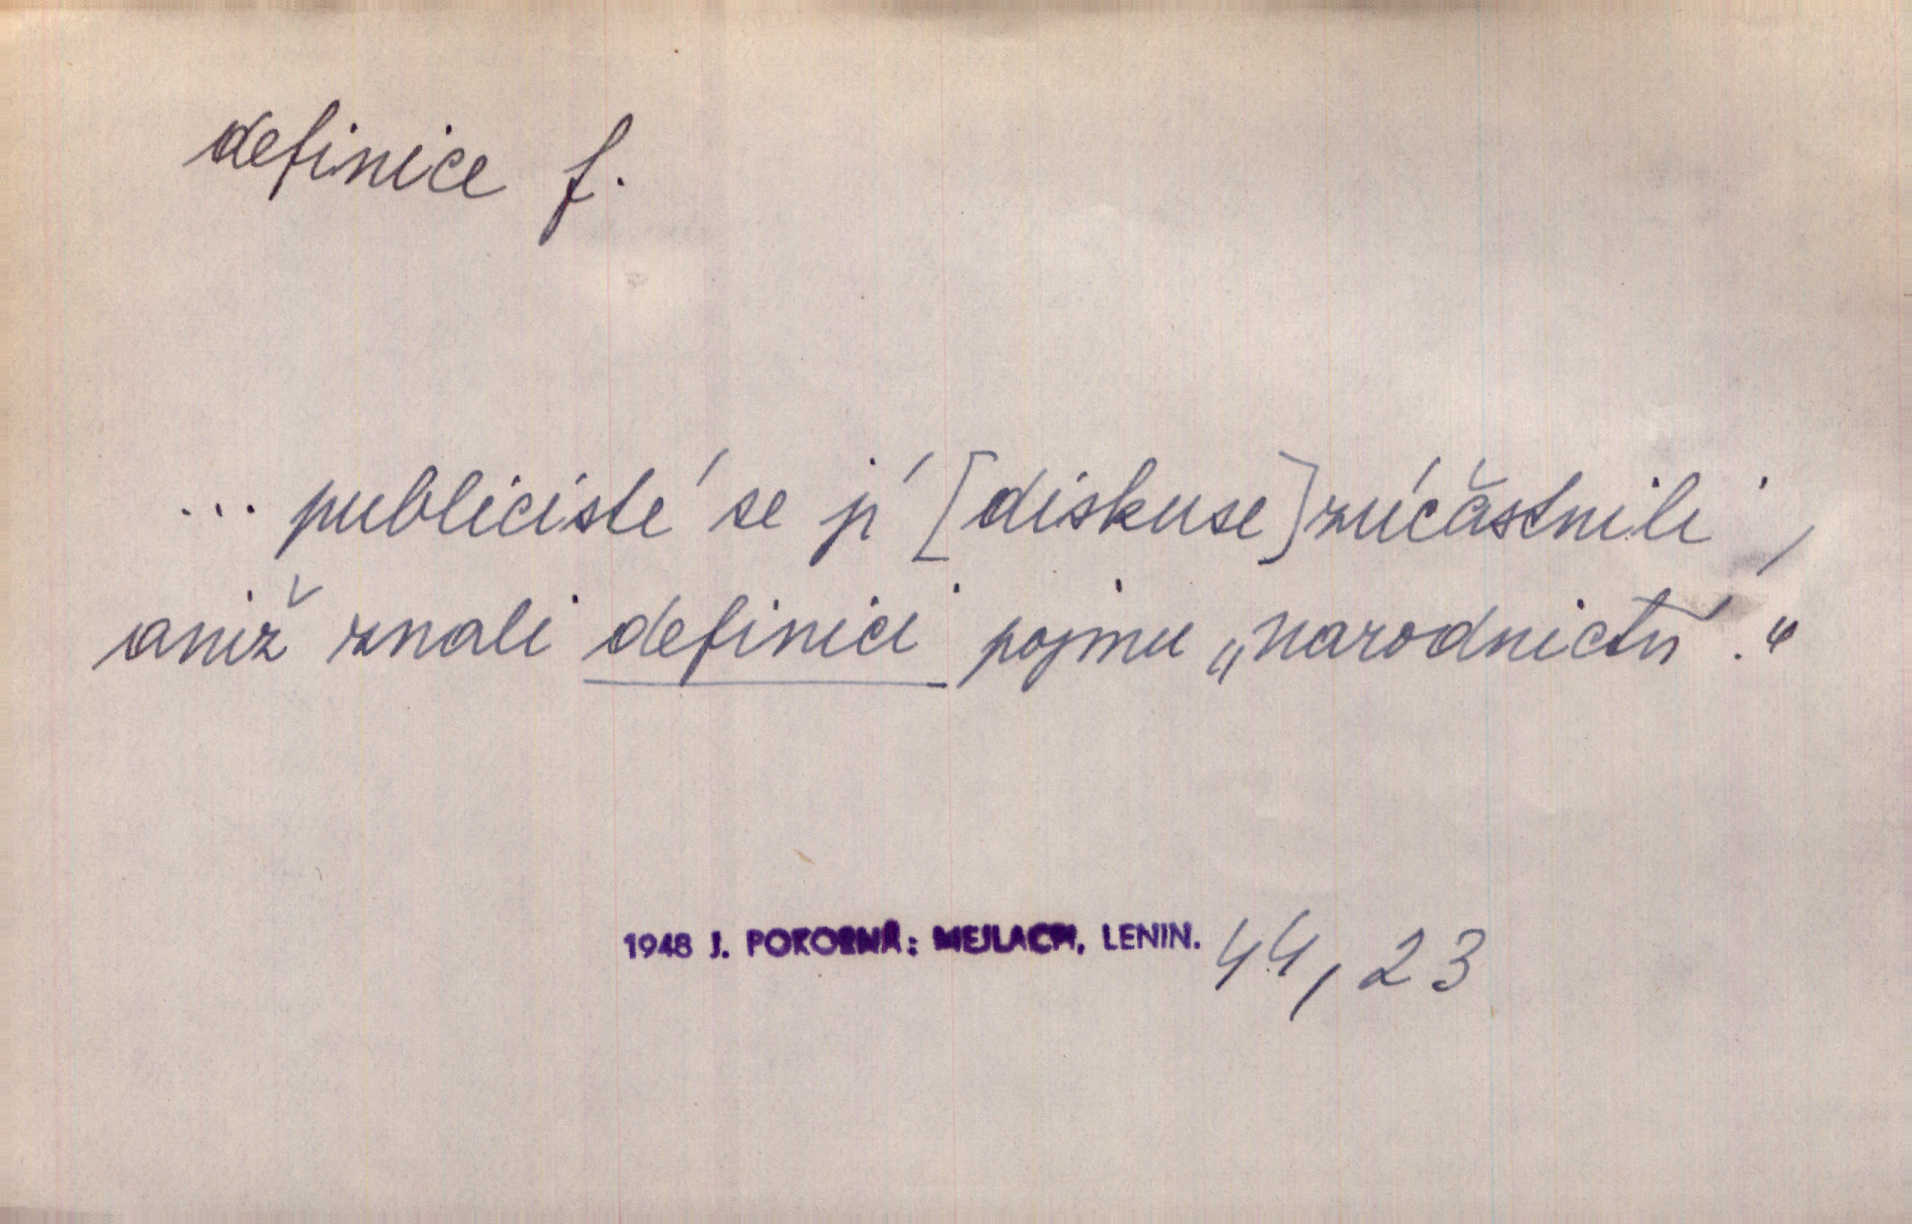 definice f.
... publicisté se jí [diskuse] zúčastnili,
aniž znali definici pojmu „narodnictví.“
1948 J. POKORNÁ: MEJLACH, LENIN. 44, 23